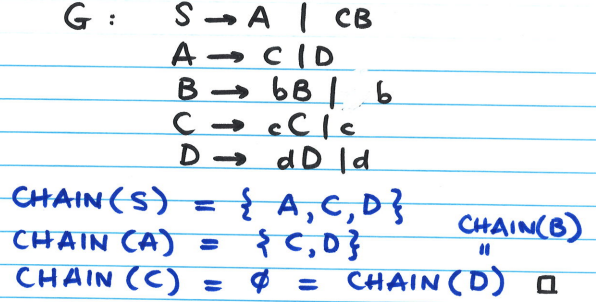 G : S → A | CB
A → C | D
B → bB | b
C → cC | c
D → dD | d
CHAIN(S) = { A, C, D }
CHAIN(A) = { C, D }
CHAIN(B)
=
CHAIN(C) = ∅ = CHAIN(D) □